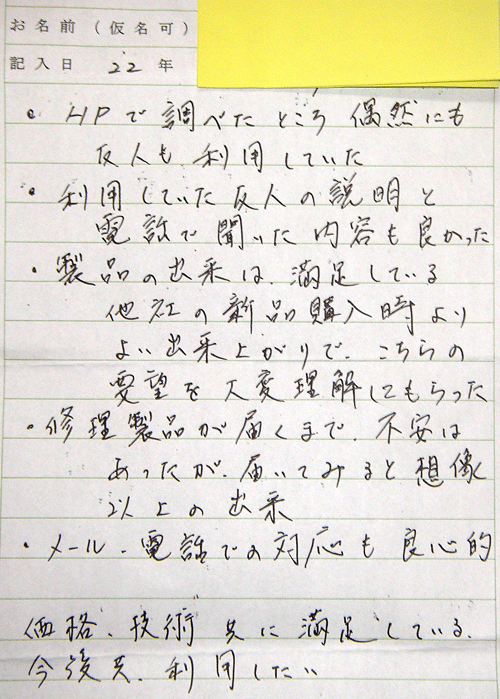 お名前（仮名可）
記入日 22 年
・HPで調べたところ 偶然にも
友人も 利用していた
・利用していた友人の説明と
電話で聞いた内容も良かった
・製品の出来は、満足している
他社の新品購入時より
よい出来上がりで、こちらの
要望を大変理解してもらった
・修理製品が届くまで、不安は
あったが、届いてみると想像
以上の出来
・メール、電話での対応も良心的
価格、技術共に満足している、
今後共、利用したい